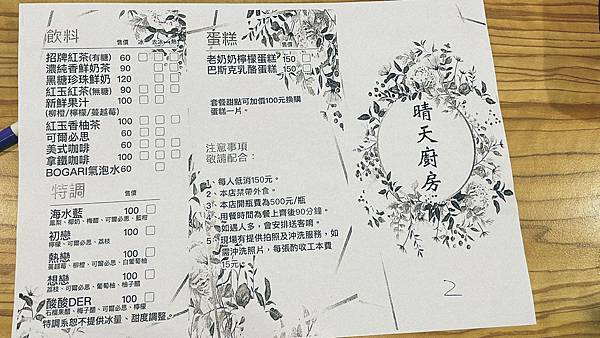 飲料
售價
招牌紅茶(有糖) 60
濃純香鮮奶茶 90
黑糖珍珠鮮奶 120
紅玉紅茶(無糖) 90
新鮮果汁 100
(柳橙/檸檬/蔓越莓)
紅玉香柚茶 100
可爾必思 60
美式咖啡 60
拿鐵咖啡 100
BOGARI氣泡水60
特調
售價
海水藍 100
鳳梨、椰奶、梅醋、可爾必思、藍柑
初戀 100
檸檬、可爾必思、荔枝
熱戀 100
蔓越莓、柳橙、可爾必思、白葡萄柚
想戀 100
荔枝、可爾必思、葡萄柚、柚子醋
酸酸DER 100
石榴果醋、梅子醋、可爾必思、檸檬
特調系恕不提供冰量、甜度調整。
蛋糕
售價
老奶奶檸檬蛋糕 150
巴斯克乳酪蛋糕 150
套餐甜點可加價100元換購
蛋糕一片。
注意事項
敬請配合：
1、每人低消150元。
2、本店禁帶外食。
3、本店開瓶費為500元/瓶
4、用餐時間為餐上齊後90分鐘。
如遇人多，會安排送客唷。
5、現場有提供拍照及沖洗服務，如
需沖洗照片，每張酌收工本費
15元。
晴天廚房
2